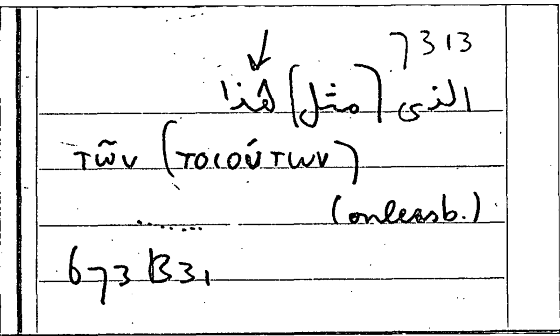 7313
↓
الذى (مثل) هذا
τῶν (τοιούτων)
(onleesb.)
........
673 B31